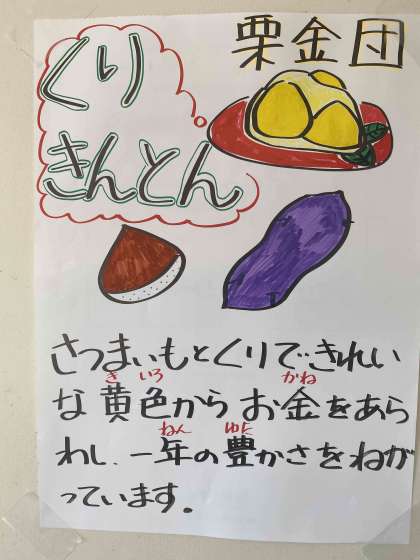 栗金団
くり
きんとん
さつまいもとくりできれい
き いろ かね
な黄色からお金をあら
ねん ゆた
わし、一年の豊かさをねが
っています。